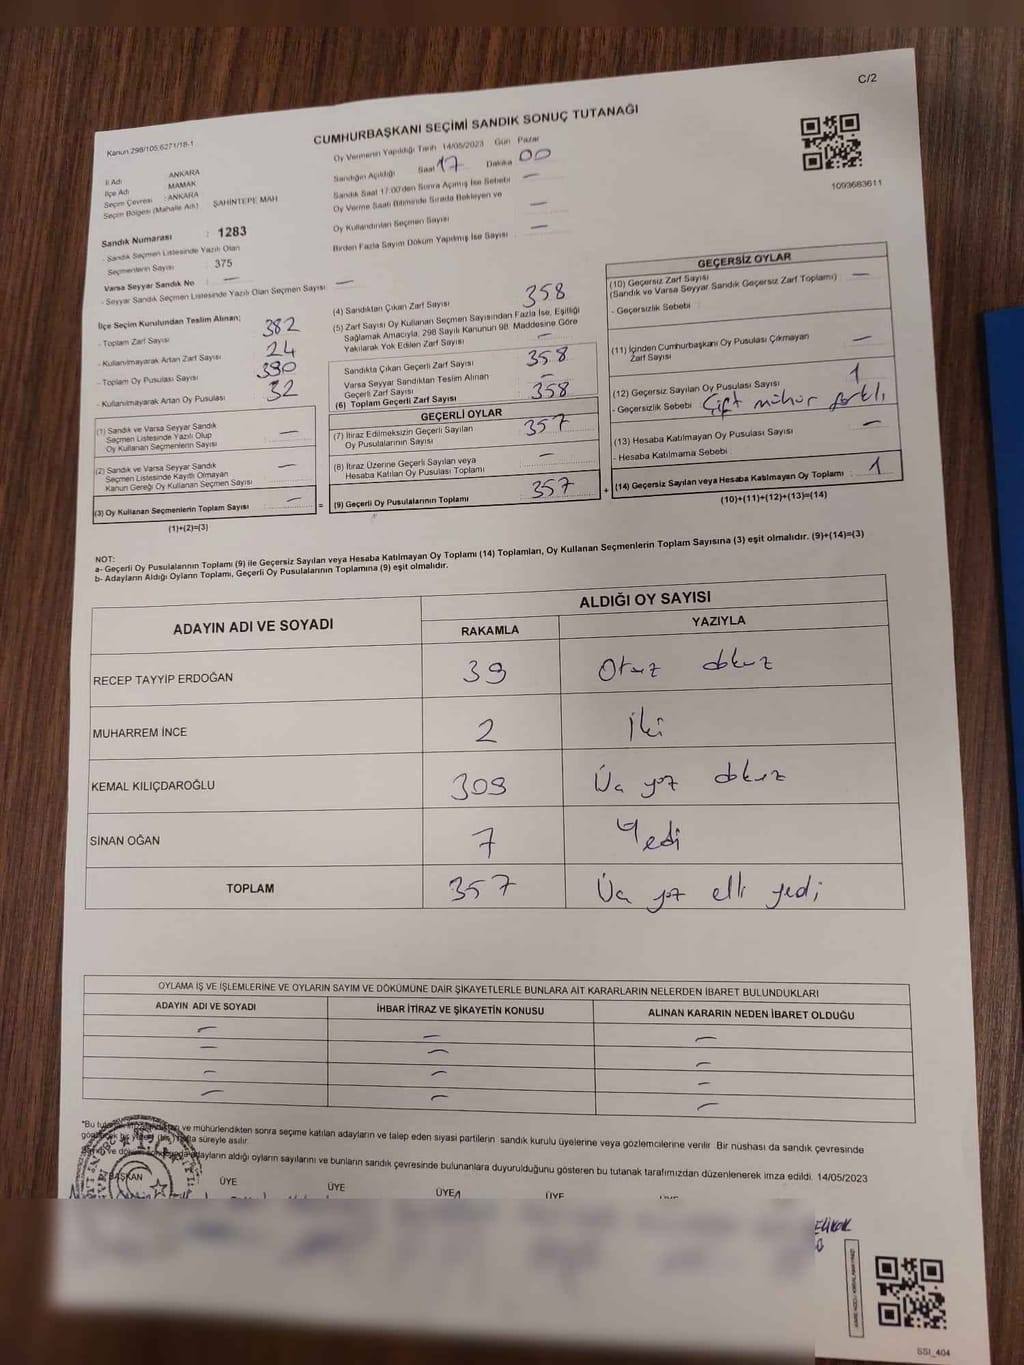 C/2
Kanun 298/105,6271/18-1
CUMHURBAŞKANI SEÇİMİ SANDIK SONUÇ TUTANAĞI
Oy Vermenin Yapıldığı Tarih 14/05/2023 Gün Pazar
Sandığın Açıldığı Saat 17 Dakika 00
Sandık Saat 17:00'den Sonra Açılmış İse Sebebi —
Oy Verme Saati Bitiminde Sırada Bekleyen ve
Oy Kullandırılan Seçmen Sayısı —
Birden Fazla Sayım Döküm Yapılmış İse Sayısı —
1093683611
İl Adı ANKARA
İlçe Adı MAMAK
Seçim Çevresi : ANKARA
Seçim Bölgesi (Mahalle Adı) ŞAHİNTEPE MAH
Sandık Numarası : 1283
- Sandık Seçmen Listesinde Yazılı Olan
Seçmenlerin Sayısı : 375
Varsa Seyyar Sandık No : —
- Seyyar Sandık Seçmen Listesinde Yazılı Olan Seçmen Sayısı —
İlçe Seçim Kurulundan Teslim Alınan;
- Toplam Zarf Sayısı 382
- Kullanılmayarak Artan Zarf Sayısı 24
- Toplam Oy Pusulası Sayısı 390
- Kullanılmayarak Artan Oy Pusulası 32
(1) Sandık ve Varsa Seyyar Sandık
Seçmen Listesinde Yazılı Olup
Oy Kullanan Seçmenlerin Sayısı —
(2) Sandık ve Varsa Seyyar Sandık
Seçmen Listesinde Kayıtlı Olmayan
Kanun Gereği Oy Kullanan Seçmen Sayısı —
(3) Oy Kullanan Seçmenlerin Toplam Sayısı —
(1)+(2)=(3)
(4) Sandıktan Çıkan Zarf Sayısı 358
(5) Zarf Sayısı Oy Kullanan Seçmen Sayısından Fazla İse, Eşitliği
Sağlamak Amacıyla, 298 Sayılı Kanunun 98. Maddesine Göre
Yakılarak Yok Edilen Zarf Sayısı —
Sandıkta Çıkan Geçerli Zarf Sayısı 358
Varsa Seyyar Sandıktan Teslim Alınan
Geçerli Zarf Sayısı —
(6) Toplam Geçerli Zarf Sayısı 358
GEÇERLİ OYLAR
(7) İtiraz Edilmeksizin Geçerli Sayılan
Oy Pusulalarının Sayısı 357
(8) İtiraz Üzerine Geçerli Sayılan veya
Hesaba Katılan Oy Pusulası Toplamı —
= (9) Geçerli Oy Pusulalarının Toplamı 357
GEÇERSİZ OYLAR
(10) Geçersiz Zarf Sayısı
(Sandık ve Varsa Seyyar Sandık Geçersiz Zarf Toplamı) —
- Geçersizlik Sebebi :
(11) İçinden Cumhurbaşkanı Oy Pusulası Çıkmayan
Zarf Sayısı —
(12) Geçersiz Sayılan Oy Pusulası Sayısı 1
- Geçersizlik Sebebi Çift mühür farklı
(13) Hesaba Katılmayan Oy Pusulası Sayısı —
- Hesaba Katılmama Sebebi
+ (14) Geçersiz Sayılan veya Hesaba Katılmayan Oy Toplamı : 1
(10)+(11)+(12)+(13)=(14)
NOT:
a- Geçerli Oy Pusulalarının Toplamı (9) ile Geçersiz Sayılan veya Hesaba Katılmayan Oy Toplamı (14) Toplamları, Oy Kullanan Seçmenlerin Toplam Sayısına (3) eşit olmalıdır. (9)+(14)=(3)
b- Adayların Aldığı Oyların Toplamı, Geçerli Oy Pusulalarının Toplamına (9) eşit olmalıdır.
ADAYIN ADI VE SOYADI
ALDIĞI OY SAYISI
RAKAMLA YAZIYLA
RECEP TAYYİP ERDOĞAN 39 Otuz dokuz
MUHARREM İNCE 2 İki
KEMAL KILIÇDAROĞLU 309 Üç yüz dokuz
SİNAN OĞAN 7 Yedi
TOPLAM 357 Üç yüz elli yedi
OYLAMA İŞ VE İŞLEMLERİNE VE OYLARIN SAYIM VE DÖKÜMÜNE DAİR ŞİKAYETLERLE BUNLARA AİT KARARLARIN NELERDEN İBARET BULUNDUKLARI
ADAYIN ADI VE SOYADI İHBAR İTİRAZ VE ŞİKAYETİN KONUSU ALINAN KARARIN NEDEN İBARET OLDUĞU
— — —
— — —
— — —
— — —
"Bu ve mühürlendikten sonra seçime katılan adayların ve talep eden siyasi partilerin sandık kurulu üyelerine veya gözlemcilerine verilir Bir nüshası da sandık çevresinde
süreyle asılır.
adayların aldığı oyların sayılarını ve bunların sandık çevresinde bulunanlara duyurulduğunu gösteren bu tutanak tarafımızdan düzenlenerek imza edildi. 14/05/2023
BAŞKAN ÜYE ÜYE ÜYE ÜYE ÜYE
SSI_404